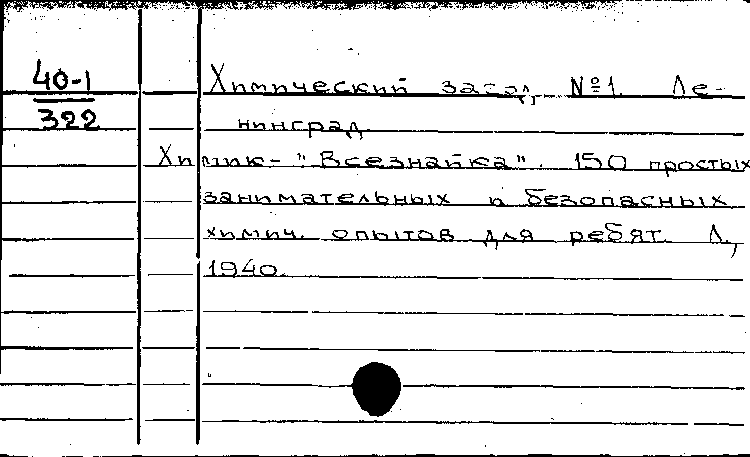 40-1
322
Химический завод, №1. Ле-
нинград.
Химик- "Всезнайка". 150 простых
занимательных и безопасных
химич. опытов для ребят. Л.,
1940.